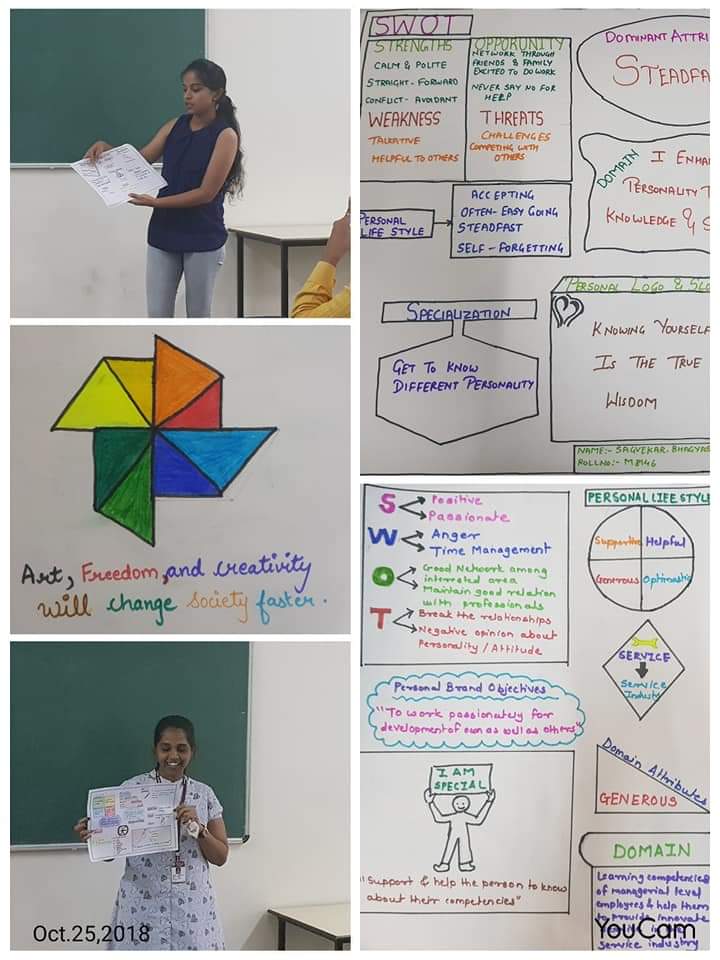 SWOT
STRENGTHS
CALM & POLITE
STRAIGHT-FORWARD
CONFLICT-AVOIDANT
WEAKNESS
TALKATIVE
HELPFUL TO OTHERS
OPPORUNITY
NETWORK THROUGH
FRIENDS & FAMILY
EXCITED TO DO WORK
NEVER SAY NO FOR
HELP
THREATS
CHALLENGES
COMPETING WITH
OTHERS
DOMINANT ATTRI
STEADFA
DOMAIN
I ENHAN
PERSONALITY T
KNOWLEDGE & S
PERSONAL
LIFE STYLE
ACCEPTING
OFTEN-EASY GOING
STEADFAST
SELF-FORGETTING
SPECIALIZATION
GET TO KNOW
DIFFERENT PERSONALITY
PERSONAL LOGO & SLO
KNOWING YOURSELF
IS THE TRUE
WISDOM
NAME:- SAGVEKAR. BHAGYAS
ROLLNO:- M8146
Art, Freedom, and creativity
will change society faster.
S
Positive
Passionate
W
Anger
Time Management
O
Good Network among
interrated area
Maintain good relation
with professionals
T
Break the relationships
Negative opinion about
Personality / Attitude
PERSONAL LIFE STYLE
Supportive
Helpful
Generous
Optimistic
SERVICE
Service
Industry
Personal Brand Objectives
"To work passionately for
development of own as well as others"
Domain Attributes
GENEROUS
I AM
SPECIAL
"Support & help the person to know
about their competencies"
DOMAIN
Learning competencies
of managerial level
employees & help them
to provide innovate
service industry
Oct.25,2018
YouCam